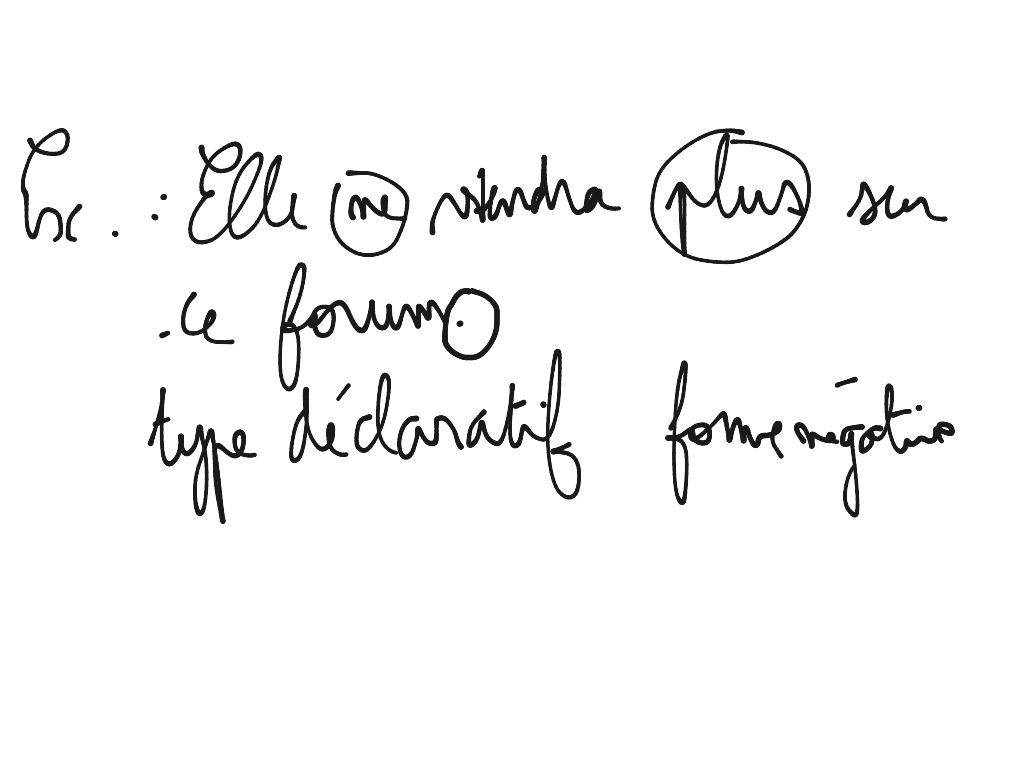 Ex. : Elle ne viendra plus sur
ce forum.
type déclaratif forme négative